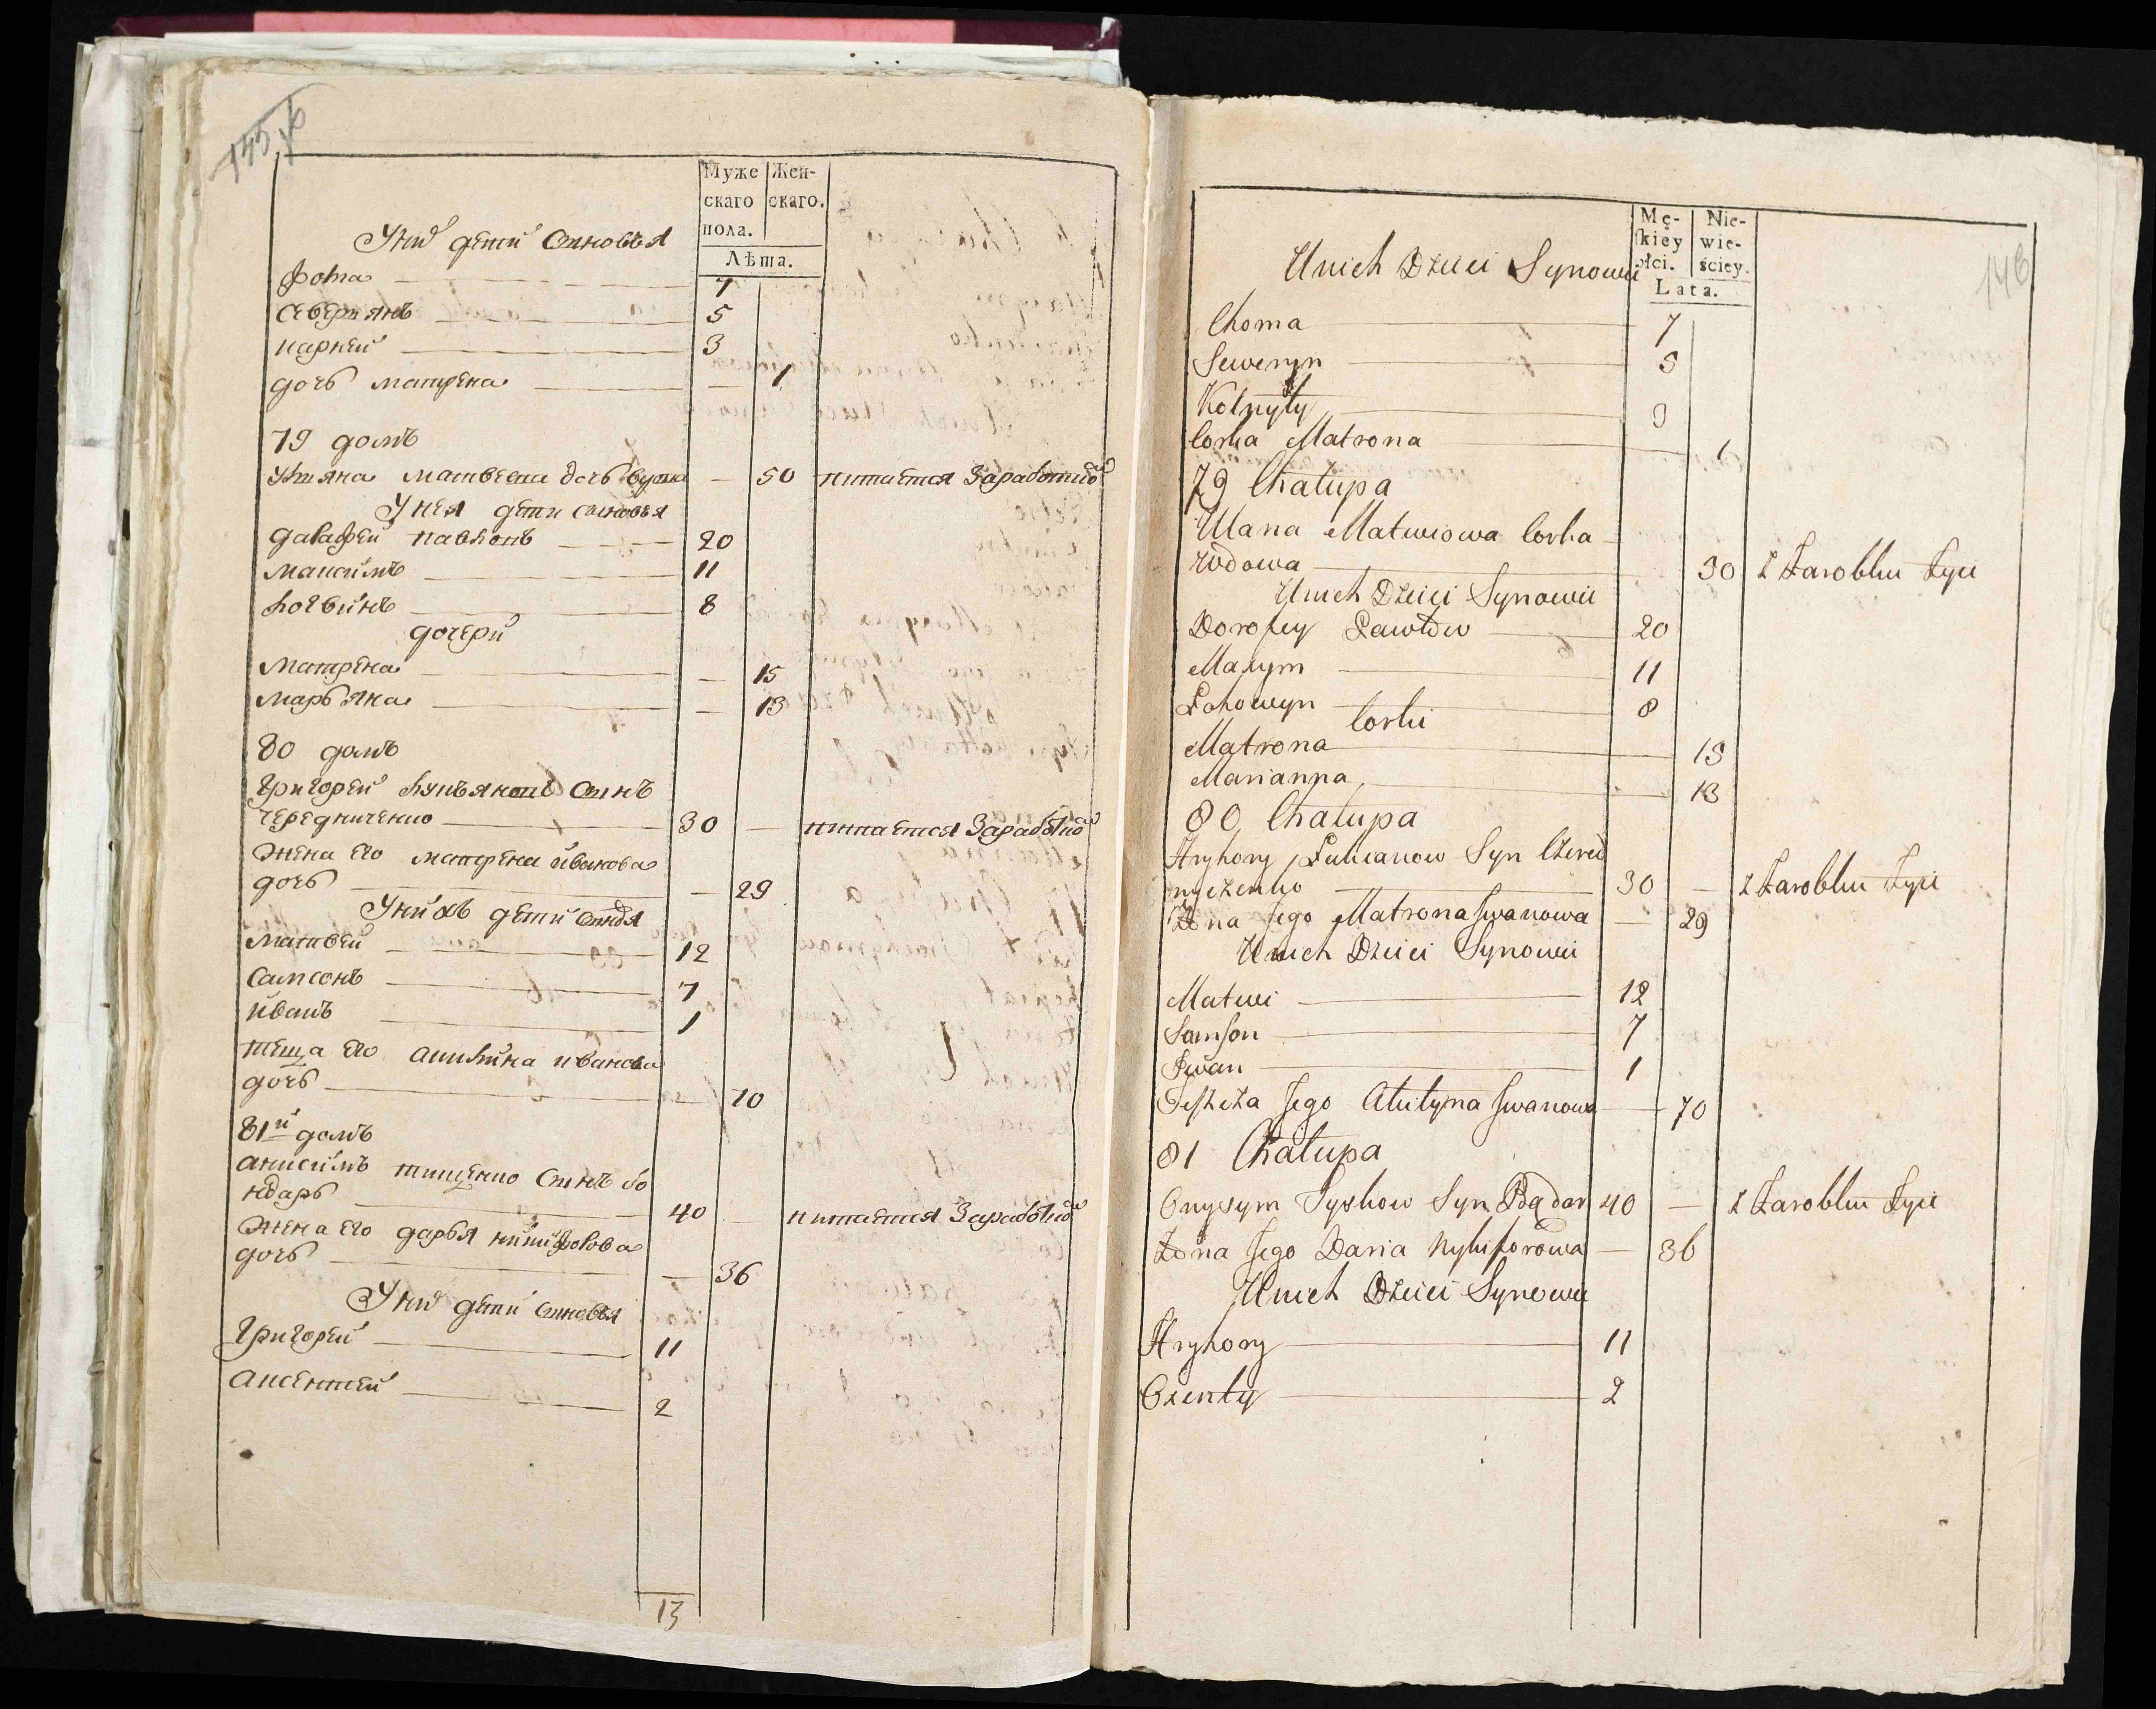 Муже Жен-
скаго скаго.
пола.
Лѣта.
Унихъ дети Сыновья
Фома 7
Северіянъ 5
карпей 3
дочь матрена — 1
79 домъ
Ульяна матвеева дочь вдова — 50 питается Заработкой
У нея дети сыновья
дарафей павловъ 20
максимъ 11
логвинъ 8
дочери
матрена — 15
марьяна — 13
80 домъ
Григорей лукьяновъ Сынъ
чередниченко 30 — питается Заработкой
жена его матрена иванова
дочь — 29
Унихъ дети Сыновья
матвей 12
Самсонъ 7
иванъ 1
теща его акилина иванова
дочь — 70
81й домъ
анисимъ тищенко Сынъ бо
ндарь 40 — питается Заработкой
жена его дарья никифорова
дочь — 36
Унихъ дети Сыновья
Григорей 11
аксентей 2
13
146
Mę- Nie-
skiey wie-
płci. ściey.
Lata.
Unich Dzieci Synowie
Choma 7
Seweryn 5
Corka Matrona — 1
79 Chałupa
Ulana Matwiowa Corka
Wdowa 50 Z Zarobku Żyie
Unich Dzieci Synowie
Dorofey Pawłow 20
Maxym 11
Lohowyn 8
Corki
Matrona — 15
Marianna — 13
80 Chałupa
Hryhory Łukianow Syn Czered
nyczenko 30 — Z Zarobku Żyie
Żona Jego Matrona Jwanowa — 29
Unich Dzieci Synowie
Matwi 12
Samson 7
Iwan 1
Teszcza Jego Akulyna Jwanowa — 70
81 Chałupa
Onysym Tyszkow Syn Bądar 40 — Z Zarobku Żyie
Żona Jego Daria Nykiforowa — 36
Unich Dzieci Synowie
Hryhory 11
Oxenty 2